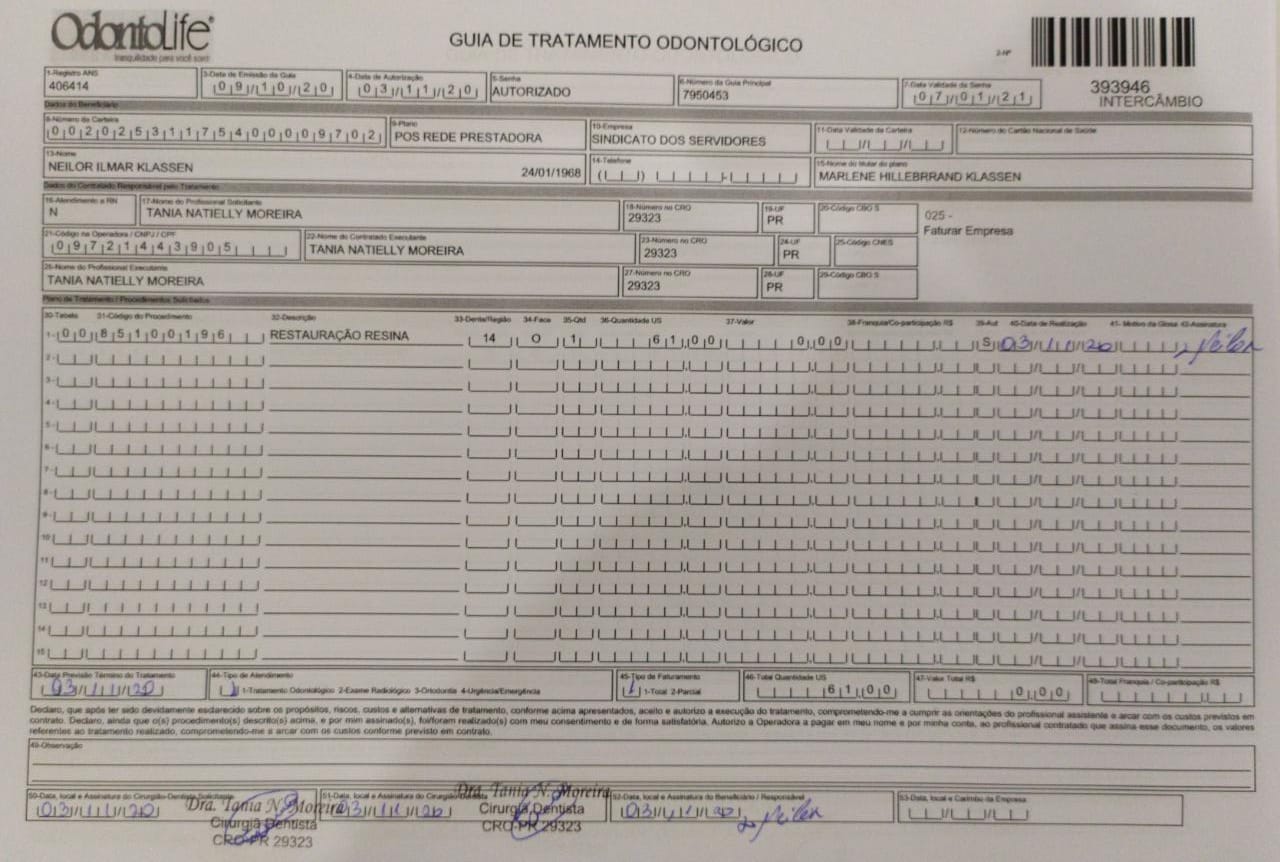 OdontoLife®
tranquilidade para você sorrir
GUIA DE TRATAMENTO ODONTOLÓGICO
2-Nº
393946
INTERCÂMBIO
1-Registro ANS
406414
3-Data de Emissão da Guia
09/10/20
4-Data de Autorização
03/11/20
5-Senha
AUTORIZADO
6-Número da Guia Principal
7950453
7-Data Validade da Senha
07/01/21
Dados do Beneficiário
8-Número da Carteira
00202531175400009702
9-Plano
POS REDE PRESTADORA
10-Empresa
SINDICATO DOS SERVIDORES
11-Data Validade da Carteira
12-Número do Cartão Nacional de Saúde
13-Nome
NEILOR ILMAR KLASSEN 24/01/1968
14-Telefone
15-Nome do titular do plano
MARLENE HILLEBRRAND KLASSEN
Dados do Contratado Responsável pelo Tratamento
16-Atendimento a RN
N
17-Nome do Profissional Solicitante
TANIA NATIELLY MOREIRA
18-Número no CRO
29323
19-UF
PR
20-Código CBO S
025 -
Faturar Empresa
21-Código na Operadora / CNPJ / CPF
09721443905
22-Nome do Contratado Executante
TANIA NATIELLY MOREIRA
23-Número no CRO
29323
24-UF
PR
25-Código CNES
26-Nome do Profissional Executante
TANIA NATIELLY MOREIRA
27-Número no CRO
29323
28-UF
PR
29-Código CBO S
Plano de Tratamento / Procedimentos Solicitados
30-Tabela 31-Código do Procedimento 32-Descrição 33-Dente/Região 34-Face 35-Qtd 36-Quantidade US 37-Valor 38-Franquia/Co-participação R$ 39-Aut 40-Data de Realização 41- Motivo da Glosa 42-Assinatura
1- 00 85100196 RESTAURAÇÃO RESINA 14 O 1 61,00 0,00 S 03/11/20 Neilor
2-
3-
4-
5-
6-
7-
8-
9-
10-
11-
12-
13-
14-
15-
43-Data Previsão Término do Tratamento
03/11/20
44-Tipo de Atendimento
1 1-Tratamento Odontológico 2-Exame Radiológico 3-Ortodontia 4-Urgência/Emergência
45-Tipo de Faturamento
1 1-Total 2-Parcial
46-Total Quantidade US
61,00
47-Valor Total R$
0,00
48-Total Franquia / Co-participação R$
Declaro, que após ter sido devidamente esclarecido sobre os propósitos, riscos, custos e alternativas de tratamento, conforme acima apresentados, aceito e autorizo a execução do tratamento, comprometendo-me a cumprir as orientações do profissional assistente e arcar com os custos previstos em
contrato. Declaro, ainda que o(s) procedimento(s) descrito(s) acima, e por mim assinado(s), foi/foram realizado(s) com meu consentimento e de forma satisfatória. Autorizo a Operadora a pagar em meu nome e por minha conta, ao profissional contratado que assina esse documento, os valores
referentes ao tratamento realizado, comprometendo-me a arcar com os custos conforme previsto em contrato.
49-Observação
50-Data, local e Assinatura do Cirurgião-Dentista Solicitante
03/11/20
Dra. Tania N. Moreira
Cirurgiã Dentista
CRO-PR 29323
51-Data, local e Assinatura do Cirurgião-Dentista
03/11/20
Dra. Tania N. Moreira
Cirurgiã Dentista
CRO-PR 29323
52-Data, local e Assinatura do Beneficiário / Responsável
03/11/20 Neilor
53-Data, local e Carimbo da Empresa